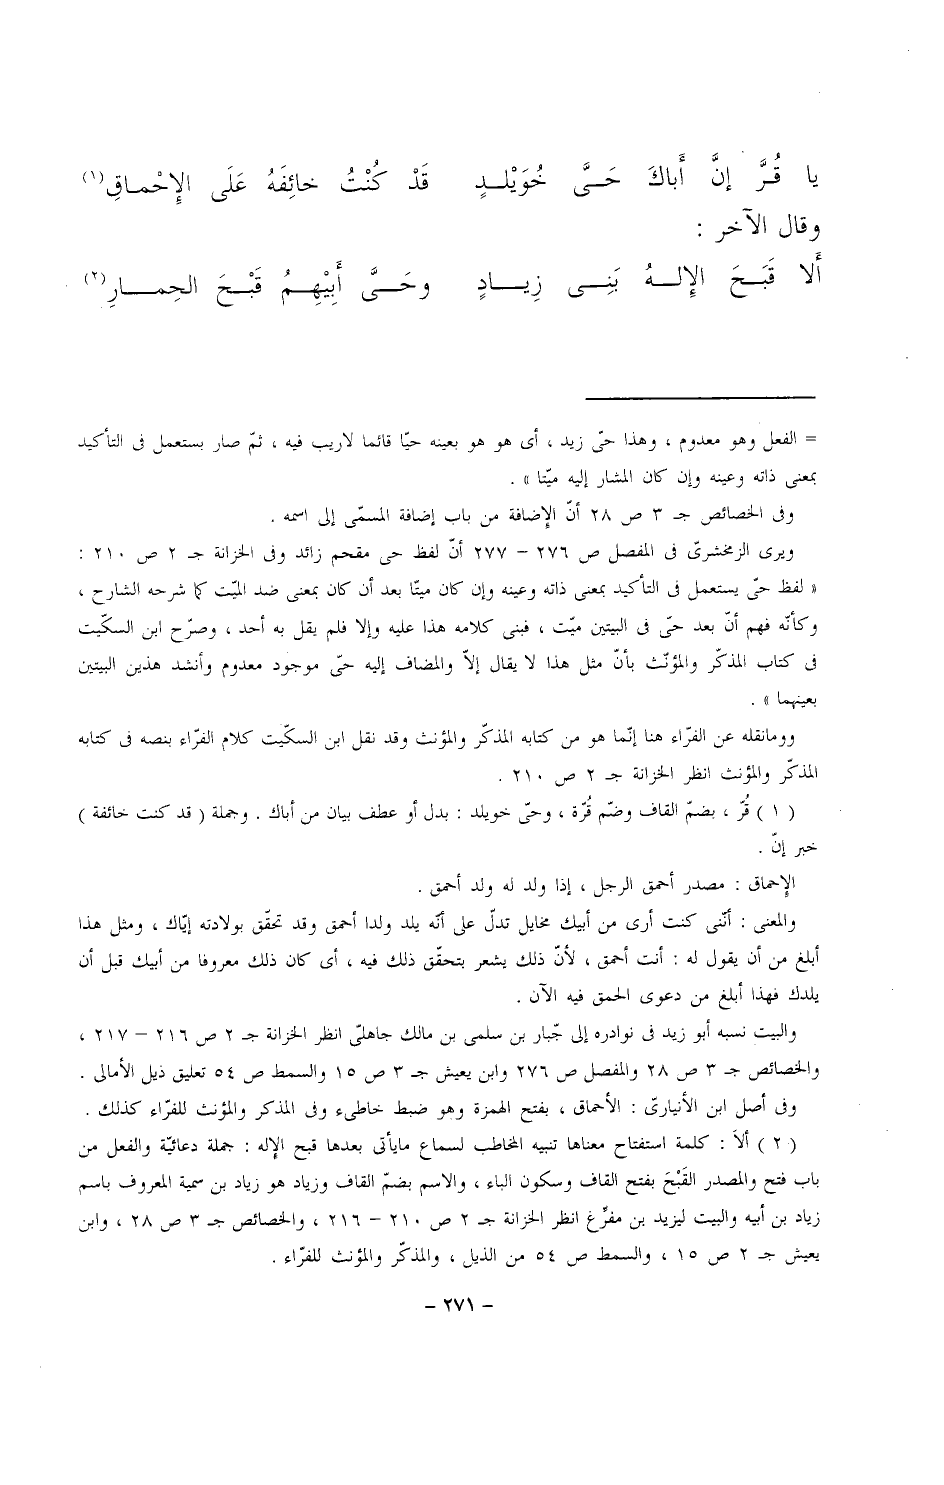 يا قُـرَّ إنَّ أَباكَ حَـىَّ خُوَيْلـدٍ قَدْ كُنْتُ خائِفَهُ عَلَى الإِحْماقِ(١)
وقال الآخر :
أَلا قَبَـحَ الإِلـهُ بَنِـى زِيـادٍ وحَـىَّ أَبِيْهِـمُ قَبْـحَ الحِمـارِ(٢)
= الفعل وهو معدوم ، وهذا حىّ زيد ، أى هو هو بعينه حيّا قائما لاريب فيه ، ثمّ صار يستعمل فى التأكيد
بمعنى ذاته وعينه وإن كان المشار إليه ميّتا » .
وفى الخصائص جـ ٣ ص ٢٨ أنّ الإضافة من باب إضافة المسمّى إلى اسمه .
ويرى الزمخشرىّ فى المفصل ص ٢٧٦ – ٢٧٧ أنّ لفظ حى مقحم زائد وفى الخزانة جـ ٢ ص ٢١٠ :
« لفظ حىّ يستعمل فى التأكيد بمعنى ذاته وعينه وإن كان ميتا بعد أن كان بمعنى ضد الميّت كما شرحه الشارح ،
وكأنّه فهم أنّ بعد حىّ فى البيتين ميّت ، فبنى كلامه هذا عليه وإلا فلم يقل به أحد ، وصرّح ابن السكّيت
فى كتاب المذكّر والمؤنّث بأنّ مثل هذا لا يقال إلاّ والمضاف إليه حىّ موجود معدوم وأنشد هذين البيتين
بعينهما » .
وومانقله عن الفرّاء هنا إنّما هو من كتابه المذكّر والمؤنث وقد نقل ابن السكّيت كلام الفرّاء بنصه فى كتابه
المذكّر والمؤنث انظر الخزانة جـ ٢ ص ٢١٠ .
( ١ ) قُرّ ، بضمّ القاف وضّم قُرّة ، وحىّ خويلد : بدل أو عطف بيان من أباك . وجملة ( قد كنت خائفة )
خبر إنّ .
الإحماق : مصدر أحمق الرجل ، إذا ولد له ولد أحمق .
والمعنى : أنّنى كنت أرى من أبيك مخايل تدلّ على أنّه يلد ولدا أحمق وقد تحقّق بولادته إيّاك ، ومثل هذا
أبلغ من أن يقول له : أنت أحمق ، لأنّ ذلك يشعر بتحقّق ذلك فيه ، أى كان ذلك معروفا من أبيك قبل أن
يلدك فهذا أبلغ من دعوى الحمق فيه الآن .
والبيت نسبه أبو زيد فى نوادره إلى جّبار بن سلمى بن مالك جاهلىّ انظر الخزانة جـ ٢ ص ٢١٦ – ٢١٧ ،
والخصائص جـ ٣ ص ٢٨ والمفصل ص ٢٧٦ وابن يعيش جـ ٣ ص ١٥ والسمط ص ٥٤ تعليق ذيل الأمالى .
وفى أصل ابن الأنيارىّ : الأحماق ، بفتح الهمزة وهو ضبط خاطىء وفى المذكر والمؤنث للفرّاء كذلك .
( ٢ ) ألاَ : كلمة استفتاح معناها تنبيه المخاطب لسماع مايأتى بعدها قبح الإله : جملة دعائيّة والفعل من
باب فتح والمصدر القَبْحَ بفتح القاف وسكون الباء ، والاسم بضمّ القاف وزياد هو زياد بن سمية المعروف باسم
زياد بن أبيه والبيت ليزيد بن مفرّغ انظر الخزانة جـ ٢ ص ٢١٠ – ٢١٦ ، والخصائص جـ ٣ ص ٢٨ ، وابن
يعيش جـ ٢ ص ١٥ ، والسمط ص ٥٤ من الذيل ، والمذكّر والمؤنث للفرّاء .
– ٢٧١ –